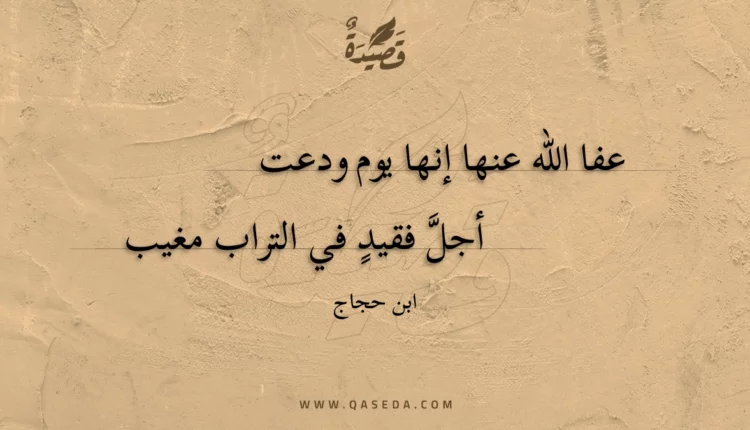 قَصِيْدَةٌ
عفا الله عنها إنها يوم ودعت
أجلَّ فقيدٍ في التراب مغيب
ابن حجاج
WWW.QASEDA.COM